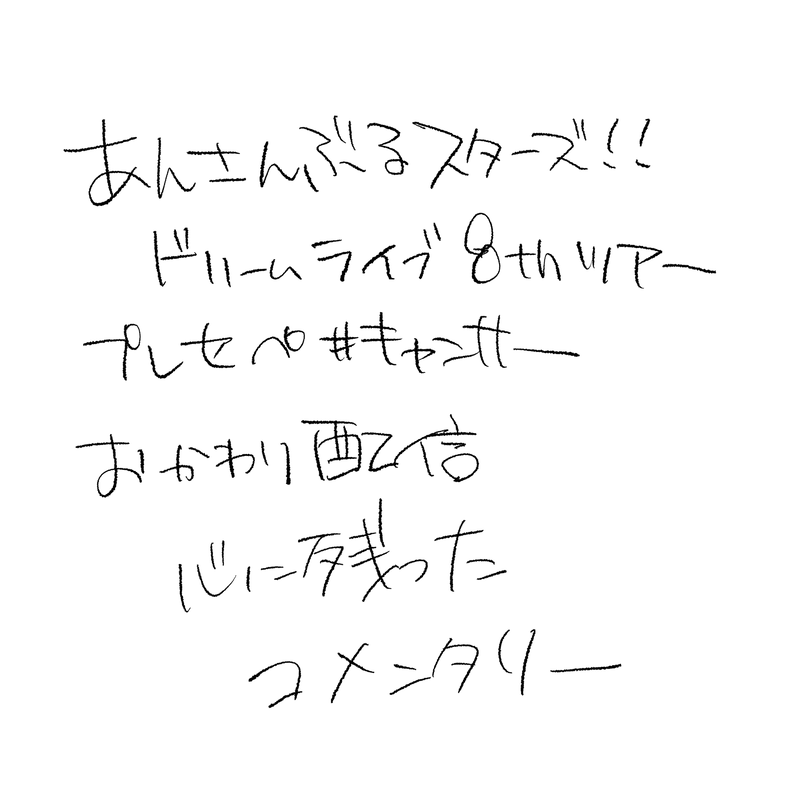 あんさんぶるスターズ!!
ドリームライブ 8thツアー
プレセペ#キャンサー
おかわり配信
心に残った
コメンタリー